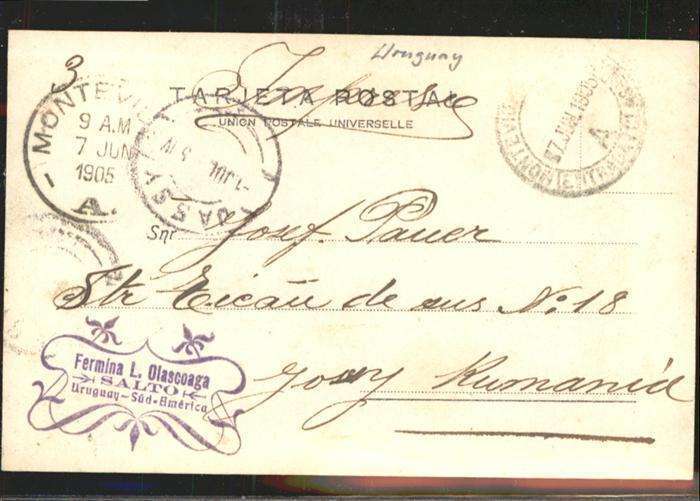 Uruguay
3
TARJETA POSTAL
UNION POSTALE UNIVERSELLE
MONTEVI
9 A.M.
7 JUN
1905
A.
JASSY
7 JUN. 1905
A
Snr Josef. Pauer
Str Ticău de sus No. 18
Jassy Rumanid
Fermina L. Olascoaga
SALTO
Uruguay-Sûd-América